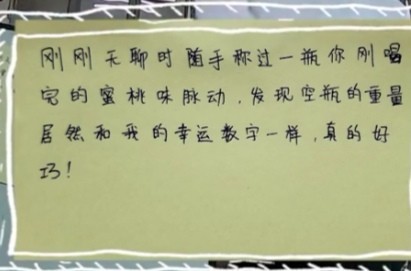 刚刚无聊时随手称过一瓶你刚喝
完的蜜桃味脉动,发现空瓶的重量
居然和我的幸运数字一样,真的好
巧!